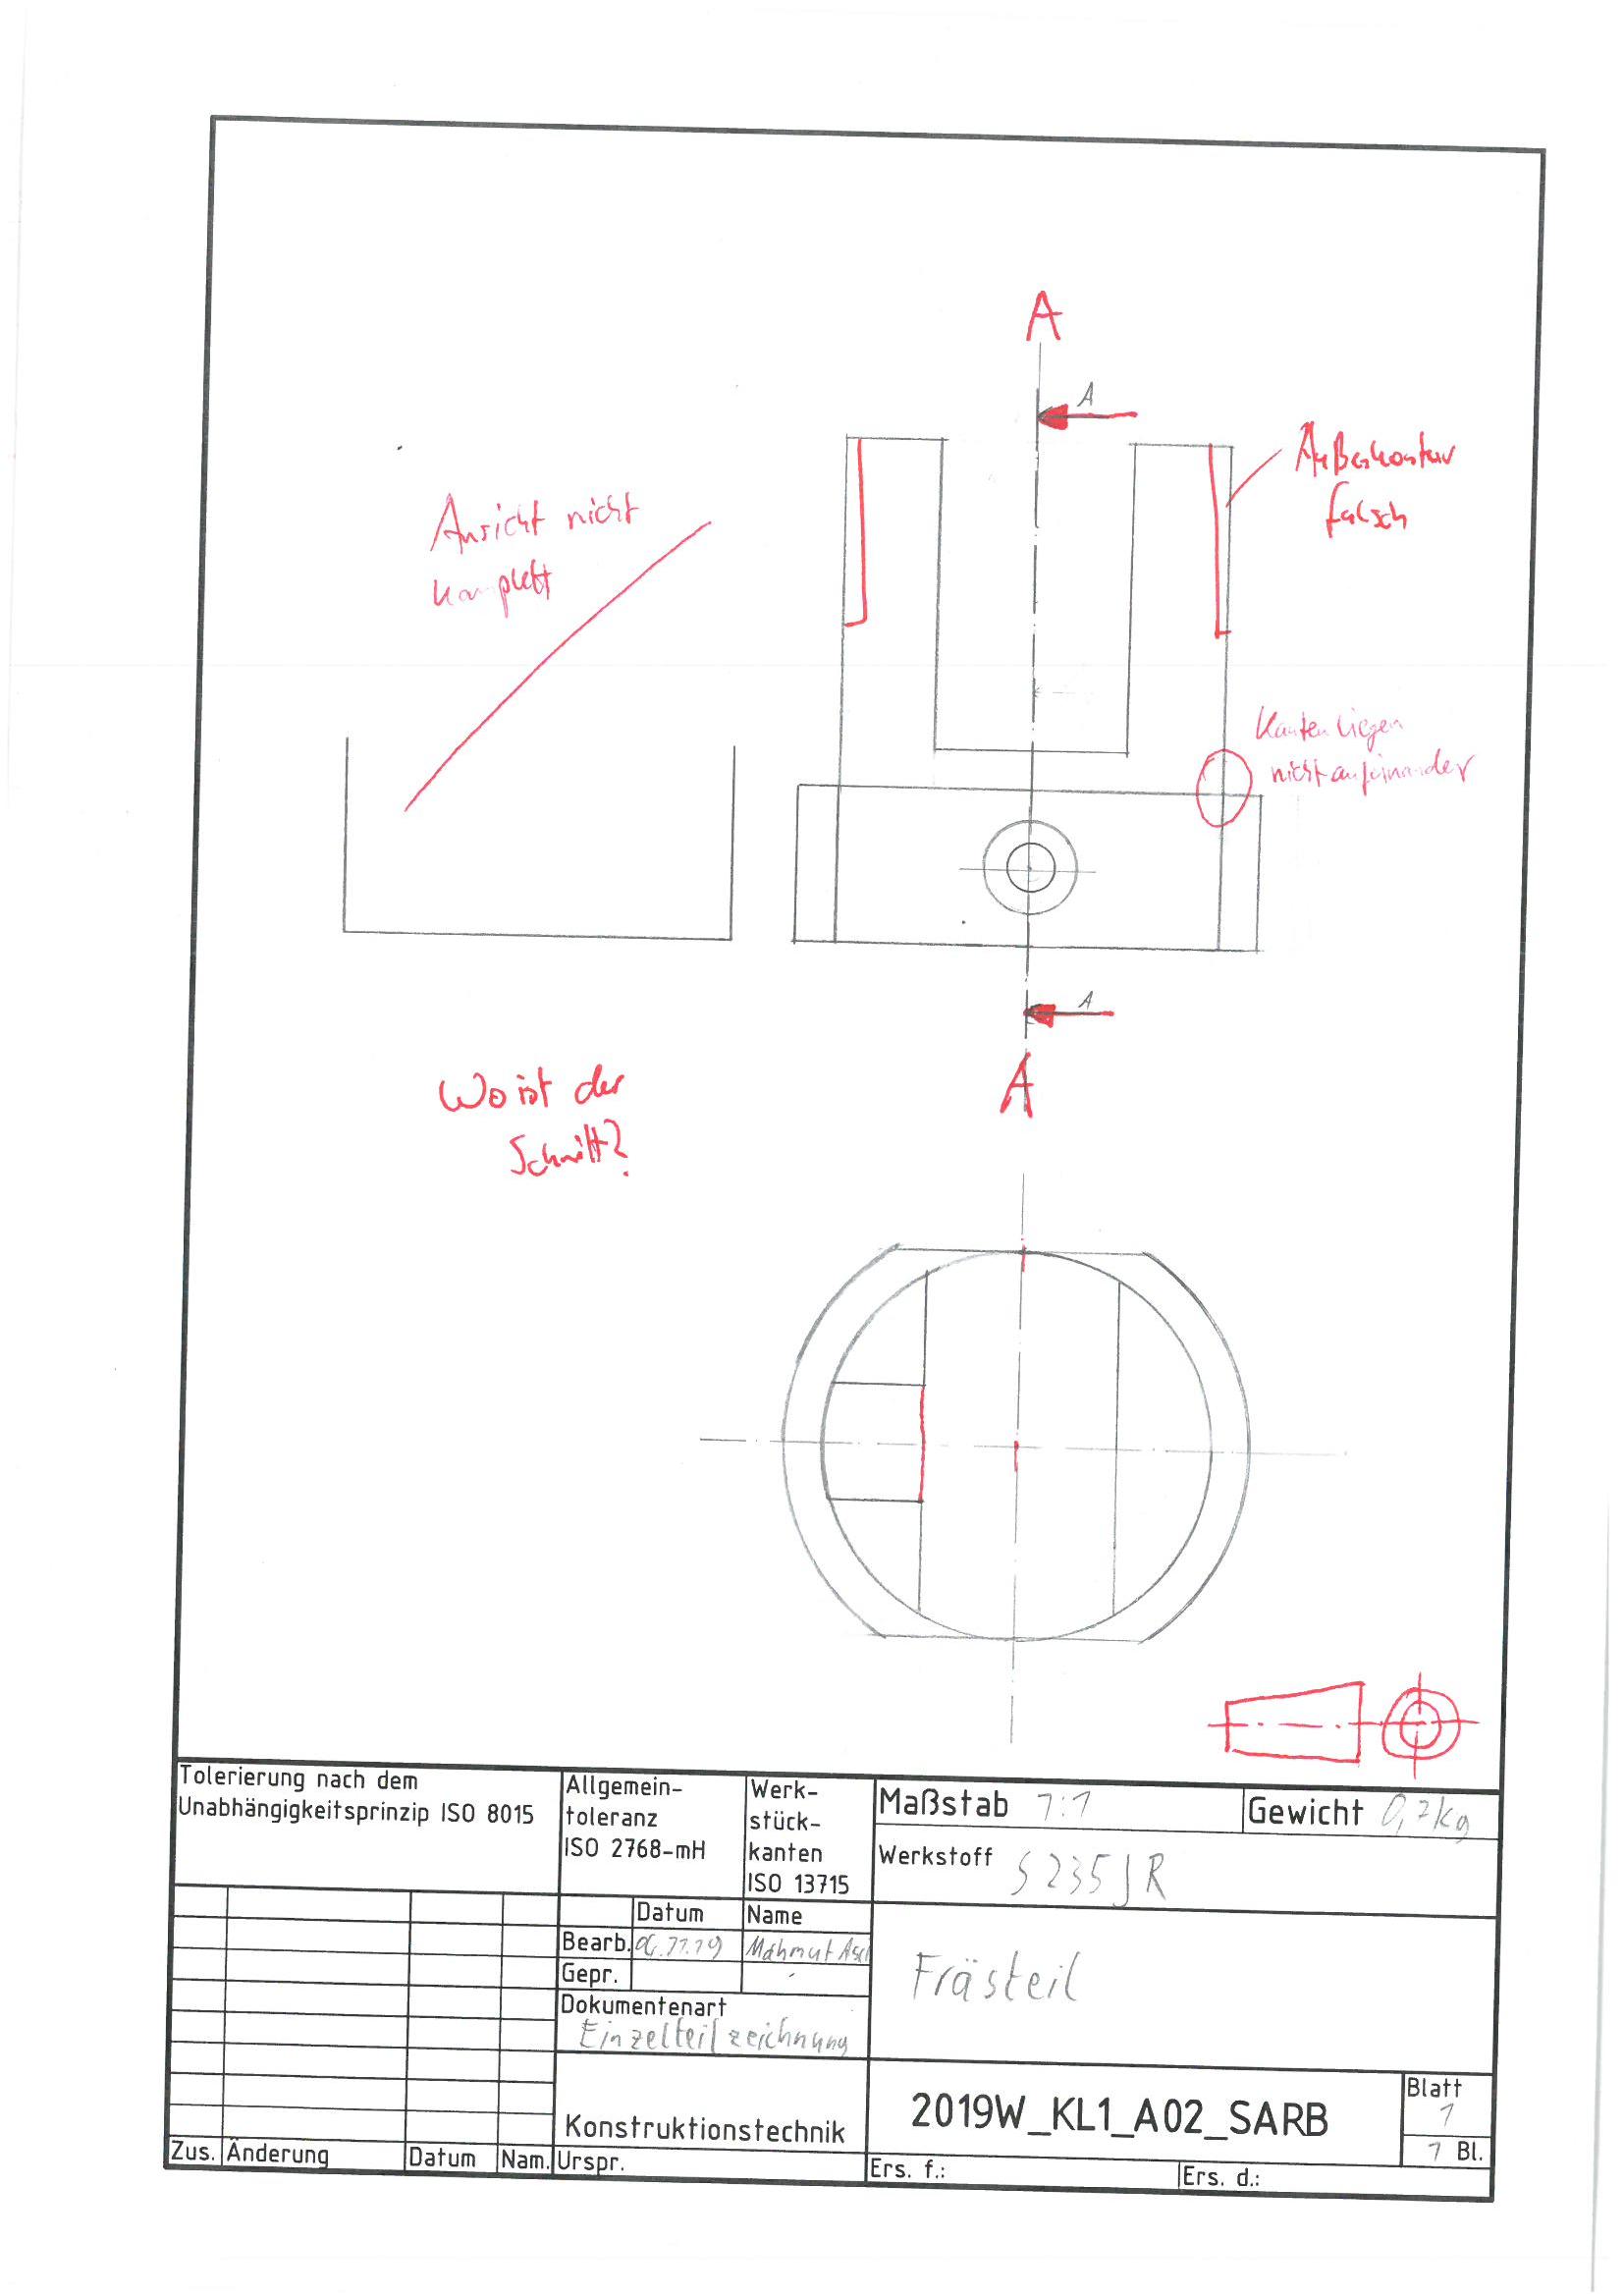 A
A
Außenkontur
falsch
Ansicht nicht
komplett
Kanten liegen
nicht aufeinander
A
A
Wo ist der
Schnitt?
Tolerierung nach dem
Unabhängigkeitsprinzip ISO 8015
Allgemein-
toleranz
ISO 2768-mH
Werk-
stück-
kanten
ISO 13715
Maßstab 1:1
Gewicht 0,7kg
Werkstoff S235JR
Datum Name
Bearb. 06.11.19 Mahmut
Gepr.
Frästeil
Dokumentenart
Einzelteilzeichnung
Konstruktionstechnik
2019W_KL1_A02_SARB
Blatt
1
1 Bl.
Zus. Änderung Datum Nam. Urspr. Ers. f.: Ers. d.: